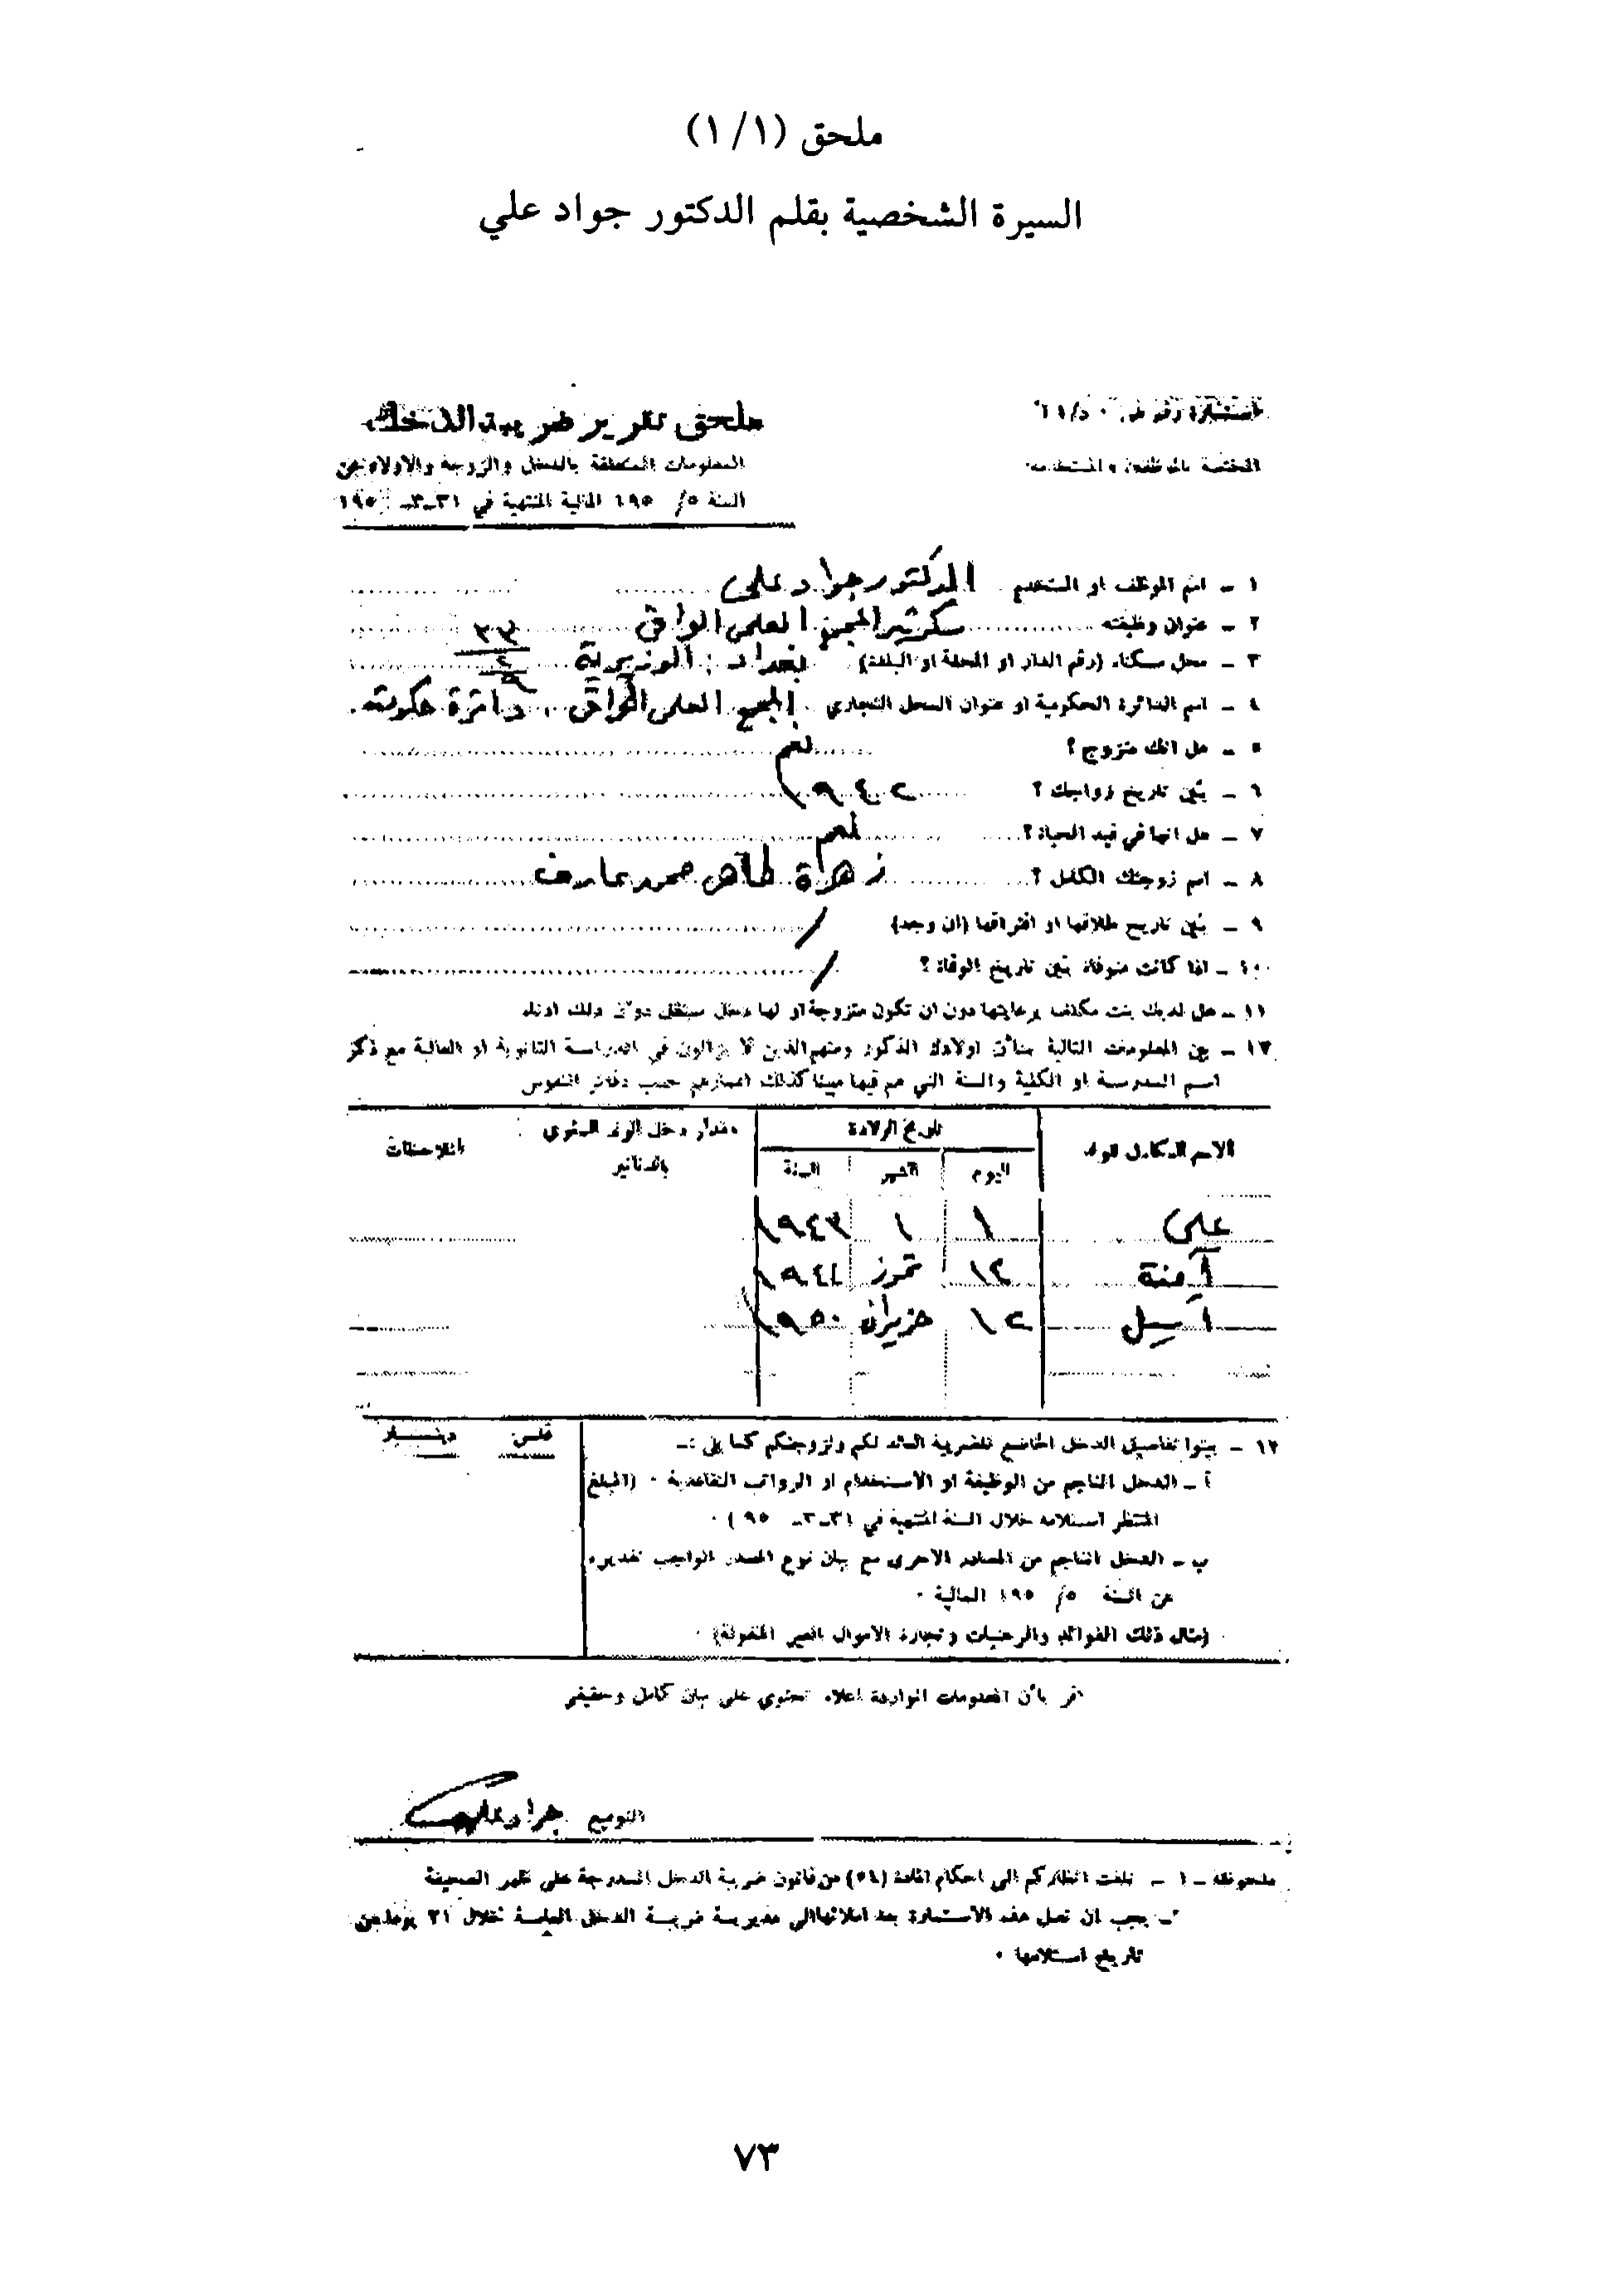 ملحق (١/١)
السيرة الشخصية بقلم الدكتور جواد علي
ملحق تقرير ضريبة الدخل
المختصة بالموظفين والمستخدمين
المعلومات المتعلقة بالدخل والزوجة والاولاد عن
السنة ٥/ ١٩٥ المالية المنتهية في ٣١-٣- ١٩٥
١ - اسم الموظف او المستخدم الدكتور جواد علي
٢ - عنوان وظيفته سكرتير المجمع العلمي العراقي
٣ - محل سكناه (رقم الدار او المحلة او البلدة) بغداد : الوزيرية ٣٣
٤ - اسم الدائرة الحكومية او عنوان المحل التجاري المجمع العلمي العراقي . دائرة حكومية .
٥ - هل انك متزوج ؟ نعم
٦ - بيّن تاريخ زواجك ؟ ١٩٤٢
٧ - هل انها في قيد الحياة ؟ نعم
٨ - اسم زوجتك الكامل ؟ زهراة طاهر محمد عارف
٩ - بيّن تاريخ طلاقها او افتراقها (ان وجد) /
١٠ - اذا كانت متوفاة بيّن تاريخ الوفاة ؟ /
١١ - هل لديك بنت مكلف برعايتها دون ان تكون متزوجة او لها دخل مستقل دوّن ذلك ادناه
١٢ - بين المعلومات التالية بشأن اولادك الذكور ومنهم الذين لا يزالون في الدراسة الثانوية او العالية مع ذكر
اسم المدرسة او الكلية والسنة التي هم فيها مبينا كذلك اعمارهم حسب دفاتر النفوس
الاسم الكامل للولد تاريخ الولادة مقدار دخل الولد السنوي الملاحظات
اليوم الشهر السنة بالدنانير
علي ١ ١ ١٩٤٣
آمنة ١٢ تموز ١٩٤٤
اسيل ١٢ حزيران ١٩٥٠
١٣ - بينوا تفاصيل الدخل الخاضع للضريبة العائد لكم ولزوجتكم كما يلي :- فلس دينار
أ - الدخل الناجم من الوظيفة او الاستخدام او الرواتب التقاعدية . (المبلغ
المنتظر استلامه خلال السنة المنتهية في ٣١-٣- ٩٥ ) .
ب - الدخل الناجم من المصادر الاخرى مع بيان نوع المصدر الواجب تقديره
عن السنة ٥/ ١٩٥ المالية .
(مثال ذلك الفوائد والرهنيات وتجارة الاموال الغير المنقولة) .
اقر بأن المعلومات الواردة اعلاه تحتوي على بيان كامل وحقيقي
التوقيع جواد علي
ملحوظة - ١ - نلفت انظاركم الى احكام المادة (٥٤) من قانون ضريبة الدخل المدرجة على ظهر الصحيفة
٢- يجب ان تصل هذه الاستمارة بعد املائها الى مديرية ضريبة الدخل العامة خلال ٢١ يوما من
تاريخ استلامها .
٧٣